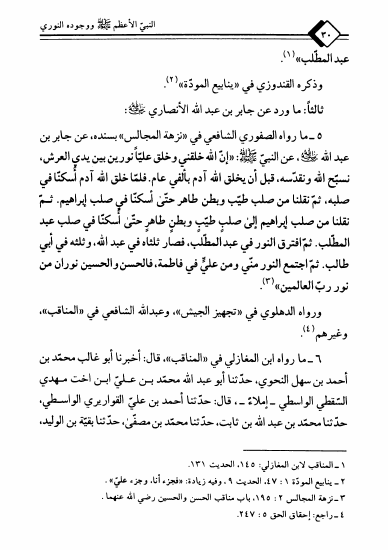 النبيّ الأعظم ﷺ ووجوده النوري
٣٠
عبد المطّلب»(١).
وذكره القندوزي في «ينابيع المودّة»(٢).
ثالثاً: ما ورد عن جابر بن عبد الله الأنصاري
٥ ـ ما رواه الصفوري الشافعي في «نزهة المجالس» بسنده، عن جابر بن
عبد الله، عن النبيّ ﷺ: «إنّ الله خلقني وخلق عليّاً نورين بين يدي العرش،
نسبّح الله ونقدّسه، قبل أن يخلق الله آدم بألفي عام. فلمّا خلق الله آدم أسكنّا في
صلبه، ثمّ نقلنا من صلب طيّب وبطن طاهر حتّى أسكنّا في صلب إبراهيم. ثـمّ
نقلنا من صلب إبراهيم إلى صلبٍ طيّبٍ وبطنٍ طاهرٍ حتّى أسكنّا في صلب عبد
المطّلب. ثمّ افترق النور في عبد المطّلب، فصار ثلثاه في عبد الله، وثلثه في أبي
طالب. ثمّ اجتمع النور منّي ومن عليٍّ في فاطمة، فالحسن والحسين نوران من
نور ربّ العالمين»(٣).
ورواه الدهلوي في «تجهيز الجيش»، وعبدالله الشافعي في «المناقب»،
وغيرهم(٤).
٦ ـ ما رواه ابن المغازلي في «المناقب»، قال: أخبرنا أبو غالب محمّد بن
أحمد بن سهل النحوي، حدّثنا أبو عبد الله محمّد بـن عـليّ ابـن اخت مـهدي
السّقطي الواسطي ـ إملاءً ـ، قال: حدّثنا أحمد بن عليّ القواريري الواسطي،
حدّثنا محمّد بن عبد الله بن ثابت، حدّثنا محمّد بن مصفّى، حدّثنا بقيّة بن الوليد،
١ ـ المناقب لابن المغازلي: ١٤٥، الحديث ١٣١.
٢ ـ ينابيع المودّة ١ : ٤٧، الحديث ٩، وفيه زيادة: «فجزء أنا، وجزء عليّ».
٣ ـ نزهة المجالس ٢ : ١٩٥، باب مناقب الحسن والحسين رضي الله عنهما.
٤ ـ راجع: إحقاق الحق ٥ : ٢٤٧.